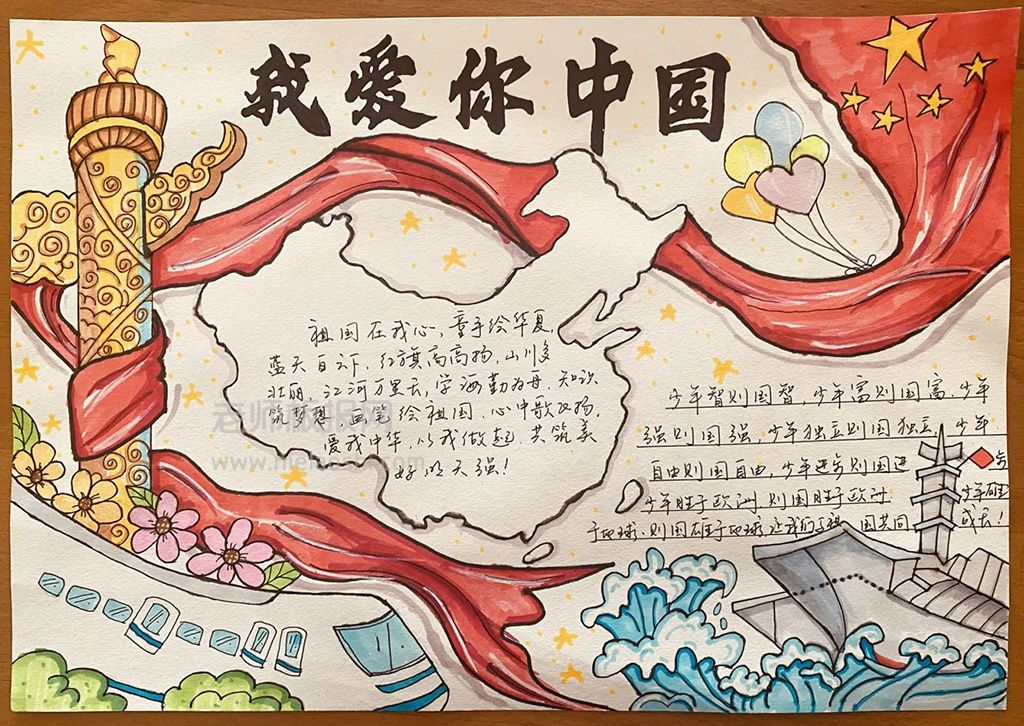 我爱你中国
祖国在我心,童手绘华夏,
蓝天白云下,红旗高高扬,山川多
壮丽,江河万里长,学海勤为舟,知识
筑梦想 画笔绘祖国,心中歌飞扬,
爱我中华,从我做起,共筑美
好明天强!
老师板报网
少年智则国智,少年富则国富,少年
强则国强,少年独立则国独立,少年
自由则国自由,少年进步则国进步
少年胜于欧洲 则国胜于欧洲 少年雄
于地球,则国雄于地球,让我们与祖国共同成长!